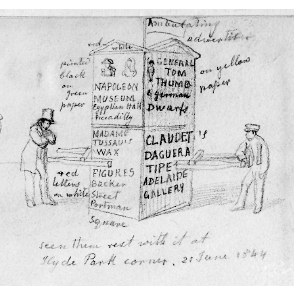 Ambulating
advertiser
red white
printed
black
on
green
paper
NAPOLEON
MUSEUM
Egyptian Hall
Picadilly
GENERAL
TOM
THUMB
& german
Dwarfs
on yellow
paper
MADAME
TUSSAU'S
WAX
FIGURES
Backer
Street
Portman
Square
red
letters
on white
CLAUDET'S
DAGUERA
TIPE
ADELAIDE
GALLERY
seen them rest with it at
Hyde Park corner. 21 June 1844